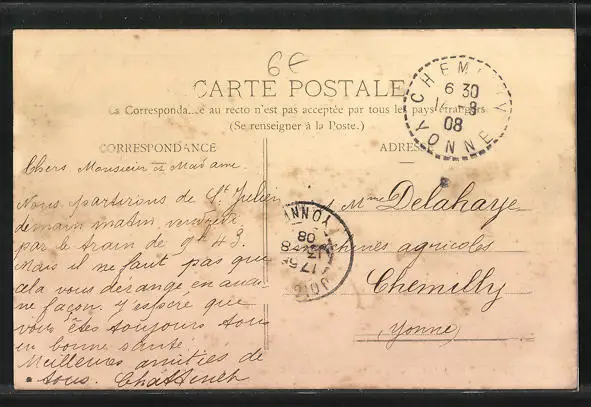 6€
CARTE POSTALE
La Corresponda...e au recto n'est pas acceptée par tous les pays étrangers
(Se renseigner à la Poste.)
CORRESPONDANCE
Chers Monsieur et Madame.
Nous partirons de St Julien
demain matin
par le train de 9h 43.
Mais il ne faut pas que
cela vous dérange en aucu-
ne façon. J'espère que
vous êtes toujours tous
en bonne santé.
Meilleures amitiés de
tous.
ADRES
Mme Delahaye
agricoles
Chemilly
(Yonne)
CHEMILLY
6 30
8
08
YONNE
YONNE
08